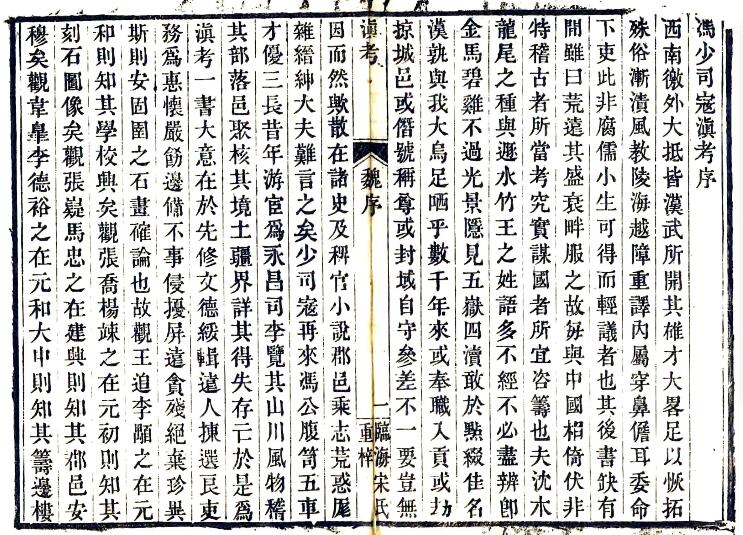 馮少司寇滇考序
西南徼外大抵皆漢武所開其雄才大畧足以恢拓
殊俗漸漬風教陵海越障重譯內屬穿鼻儋耳委命
下吏此非腐儒小生可得而輕議者也其後書缺有
間雖曰荒遠其盛衰畔服之故每與中國相倚伏非
特稽古者所當考究實謀國者所宜咨籌也夫沈木
龍尾之種與遯水竹王之姓語多不經不必盡辨卽
金馬碧雞不過光景隱見五嶽四瀆敢於點綴佳名
漢孰與我大烏足哂乎數千年來或奉職入貢或刼
掠城邑或僭號稱尊或封域自守參差不一要豈無
滇考
魏序
一
臨海宋氏
重梓
因而然歟散在諸史及稗官小說郡邑乘志荒惑厖
雜縉紳大夫難言之矣少司寇再來馮公腹笥五車
才優三長昔年游宦爲永昌司李覽其山川風物稽
其部落邑聚核其境土疆界詳其得失存亡於是爲
滇考一書大意在於先修文德綏輯遠人揀選良吏
務爲惠懷嚴飭邊備不事侵擾屏遠貪殘絕棄珍異
斯則安固圉之石畫確論也故觀王追李顒之在元
和則知其學校興矣觀張喬楊竦之在元初則知其
刻石圖像矣觀張嶷馬忠之在建興則知其郡邑安
穆矣觀韋皋李德裕之在元和大中則知其籌邊樓